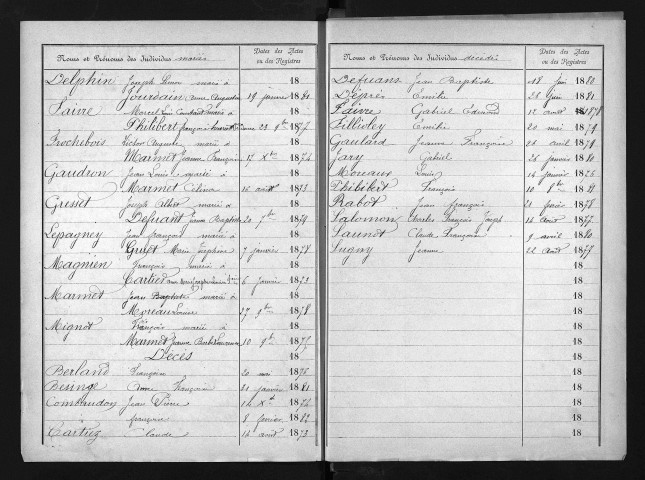 Noms et Prénoms des Individus mariés
Dates des Actes ou des Registres
Delphin Joseph Simon marié à 18
Jourdain Anne Augusta 19 janvier 1881
Faivre Marcel marié à 18
Philibert françoise 22 9bre 1877
Frochebois Victor Auguste marié à 18
Marmet Jeanne Françoise 17 Xbre 1874
Gaudron Jean Louis marié à 18
Marmet Célina 16 avril 1873
Grisset Joseph Albert marié à 18
Defrant Jeanne Baptiste 20 7bre 1879
Lepagney Jean françois marié à 18
Gruet Marie Joséphine 7 janvier 1878
Magnien François marié à 18
Cartier 6 janvier 1872
Marmet Jean Baptiste marié à 18
Moreau Louise 27 9bre 1878
Mignot François marié à 18
Marmet Jeanne 10 9bre 1877
Décès 18
Berland Françoise 20 mai 1876
Besinge Anne Françoise 21 janvier 1881
Combaudon Jean Pierre 14 Xbre 1874
françoise 8 février 1882
Cartieg Claude 14 août 1873
Noms et Prénoms des Individus décédés
Dates des Actes ou des Registres
Defrans Jean Baptiste 18 juin 1880
Déprés Emilie 26 juin 1881
Faivre Gabriel Edouard 12 août 1878
Fillioley Emilie 20 mai 1879
Goulard Jeanne Françoise 21 avril 1879
Jary Gabriel 26 janvier 1880
Mouaux Louis 14 janvier 1876
Philibert François 10 8bre 1881
Rabot Jean françois 21 février 1878
Salomon Charles François Joseph 16 août 1877
Saunot Claude Françoise 9 avril 1880
Sugny Jeanne 22 août 1877
18
18
18
18
18
18
18
18
18
18
18
18
18
18